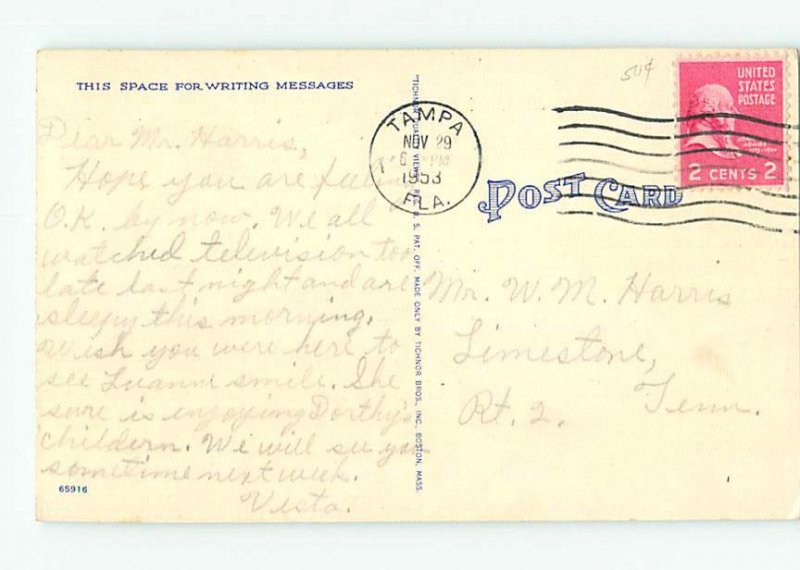 THIS SPACE FOR WRITING MESSAGES
Dear Mr. Harris,
Hope you are feeling
O.K. by now. We all
watched television too
late last night and are
sleepy this morning.
Wish you were here to
see Luanne smile. She
sure is enjoying Dorthy's
childern. We will see you
sometime next week.
Vista.
65916
REG. U. S. PAT. OFF. MADE ONLY BY TICHNOR BROS., INC., BOSTON, MASS.
TAMPA
NOV 29
PM
1953
FLA.
50¢
UNITED
STATES
POSTAGE
2 CENTS 2
POST CARD
Mr. W. M. Harris
Limestone,
Rt. 2. Tenn.